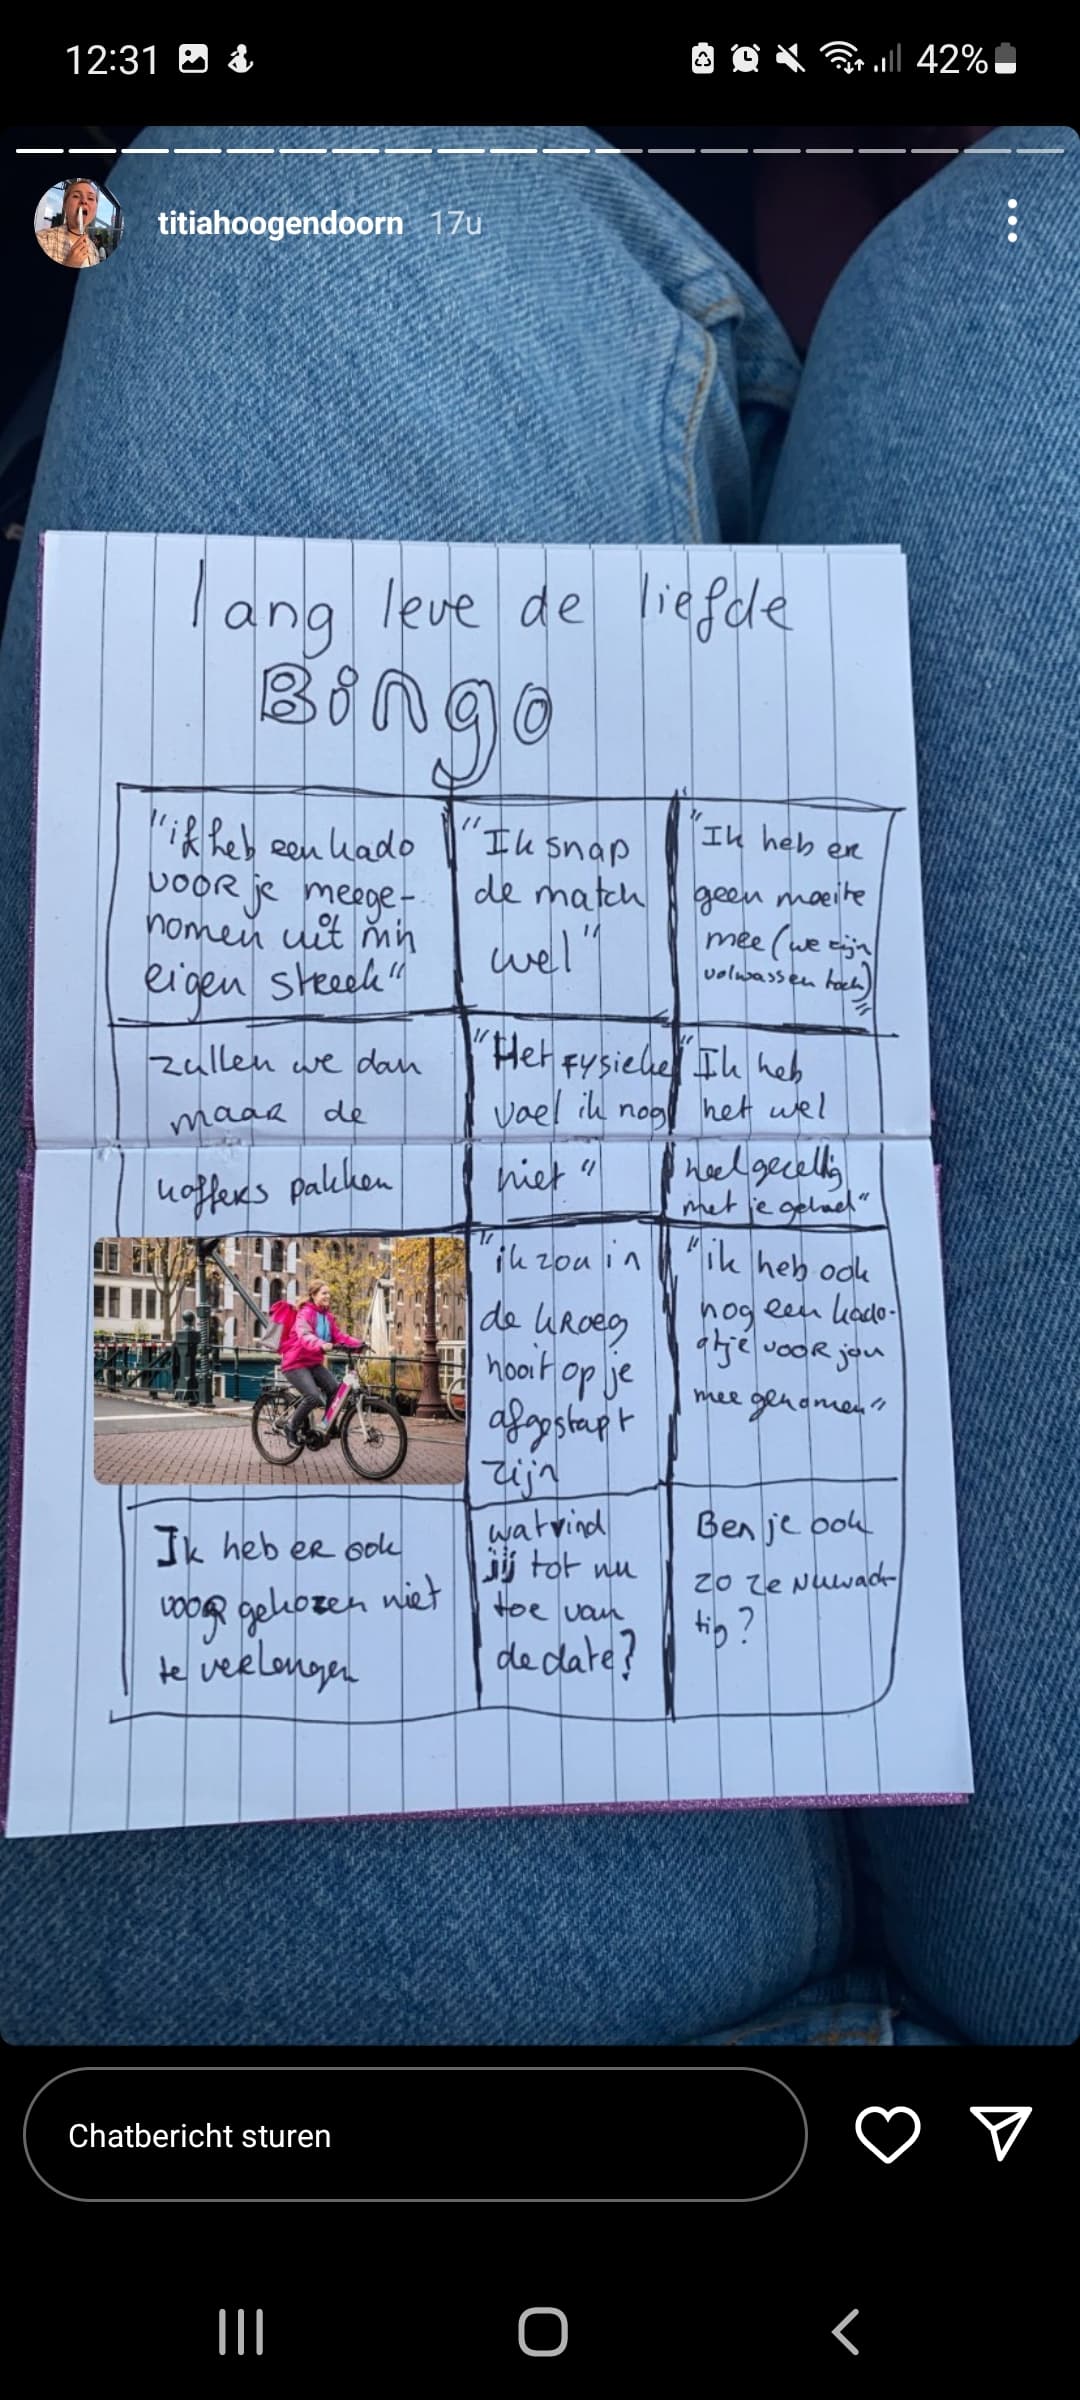 12:31
42%
titiahoogendoorn 17u
lang leve de liefde
Bingo
"ik heb een kado
voor je meege-
nomen uit mijn
eigen streek"
"Ik snap
de match
wel"
"Ik heb er
geen moeite
mee (we zijn
volwassen toch)"
zullen we dan
maar de
koffers pakken
"Het fysieke
voel ik nog
niet"
"Ik heb
het wel
heel gezellig
met je gehad"
"ik zou in
de kroeg
nooit op je
afgestapt
zijn
"ik heb ook
nog een kado-
otje voor jou
mee genomen"
Ik heb er ook
voor gekozen niet
te verlengen
wat vind
jij tot nu
toe van
de date?
Ben je ook
zo zenuwach
tig?
Chatbericht sturen